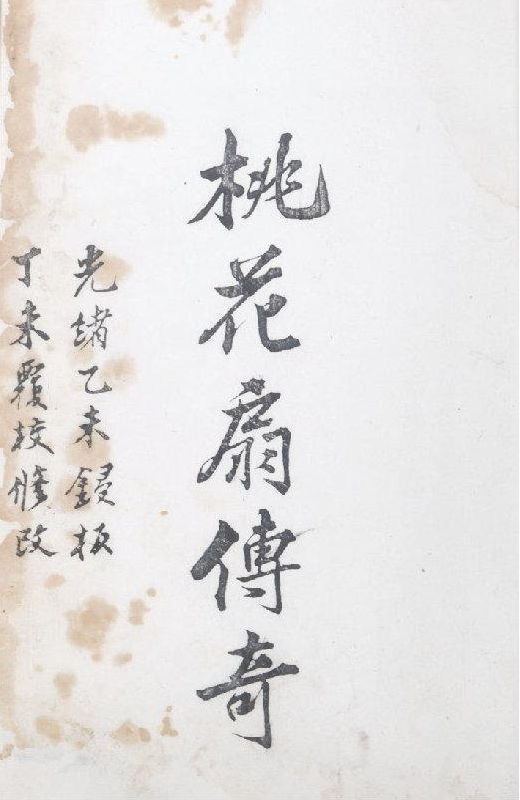 桃花扇傳奇
光緒乙未鋟板
丁未覆校修改